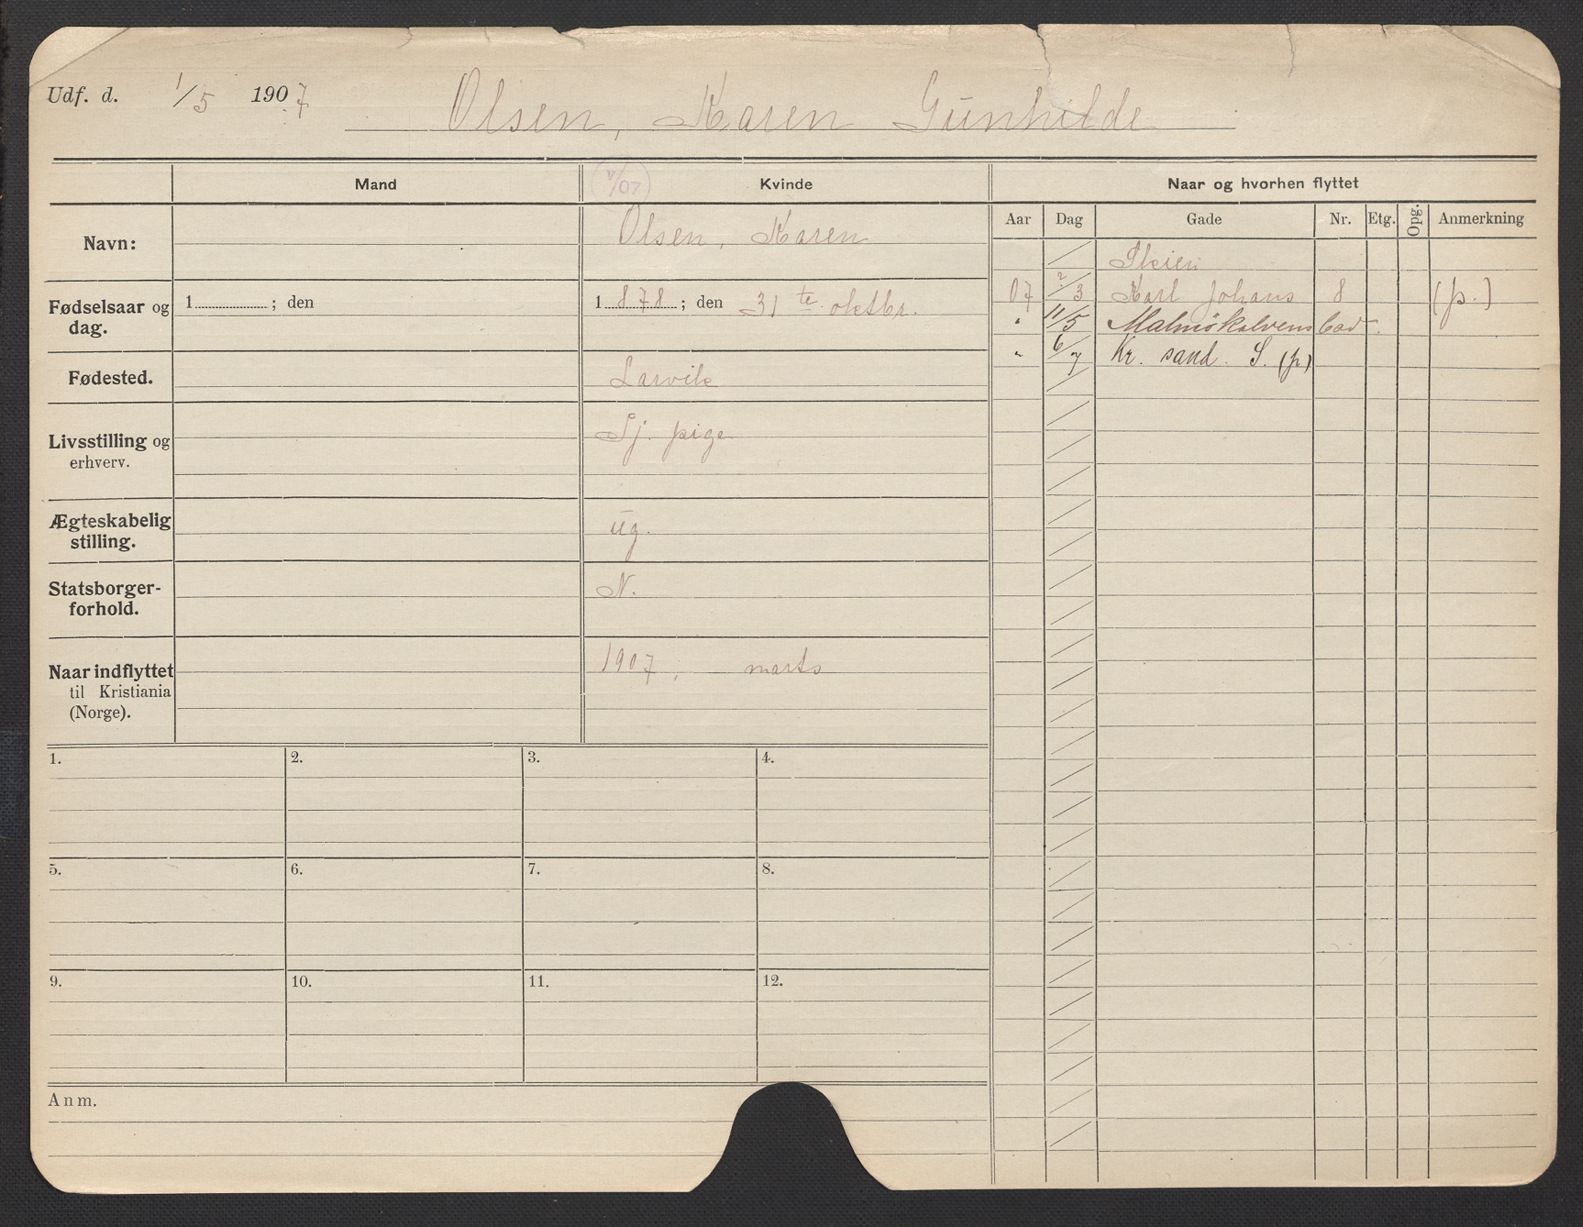 Udf. d. 1/5 1907 Olsen, Karen Gunhilde
Mand Kvinde Naar og hvorhen flyttet
/07
Aar Dag Gade Nr. Etg. Opg. Anmerkning
Navn: Olsen, Karen
Skien
Fødselsaar og dag. 1 ; den 1 878 ; den 31te oktbr.
07 2/3 Karl Johans 8 (p.)
" 11/5 Malmøkalvens bad.
" 6/7 Kr. sand. S. (p)
Fødested. Larvik
Livsstilling og erhverv. Tj. pige
Ægteskabelig stilling. ug.
Statsborgerforhold. N.
Naar indflyttet til Kristiania (Norge). 1907, marts
1. 2. 3. 4.
5. 6. 7. 8.
9. 10. 11. 12.
Anm.